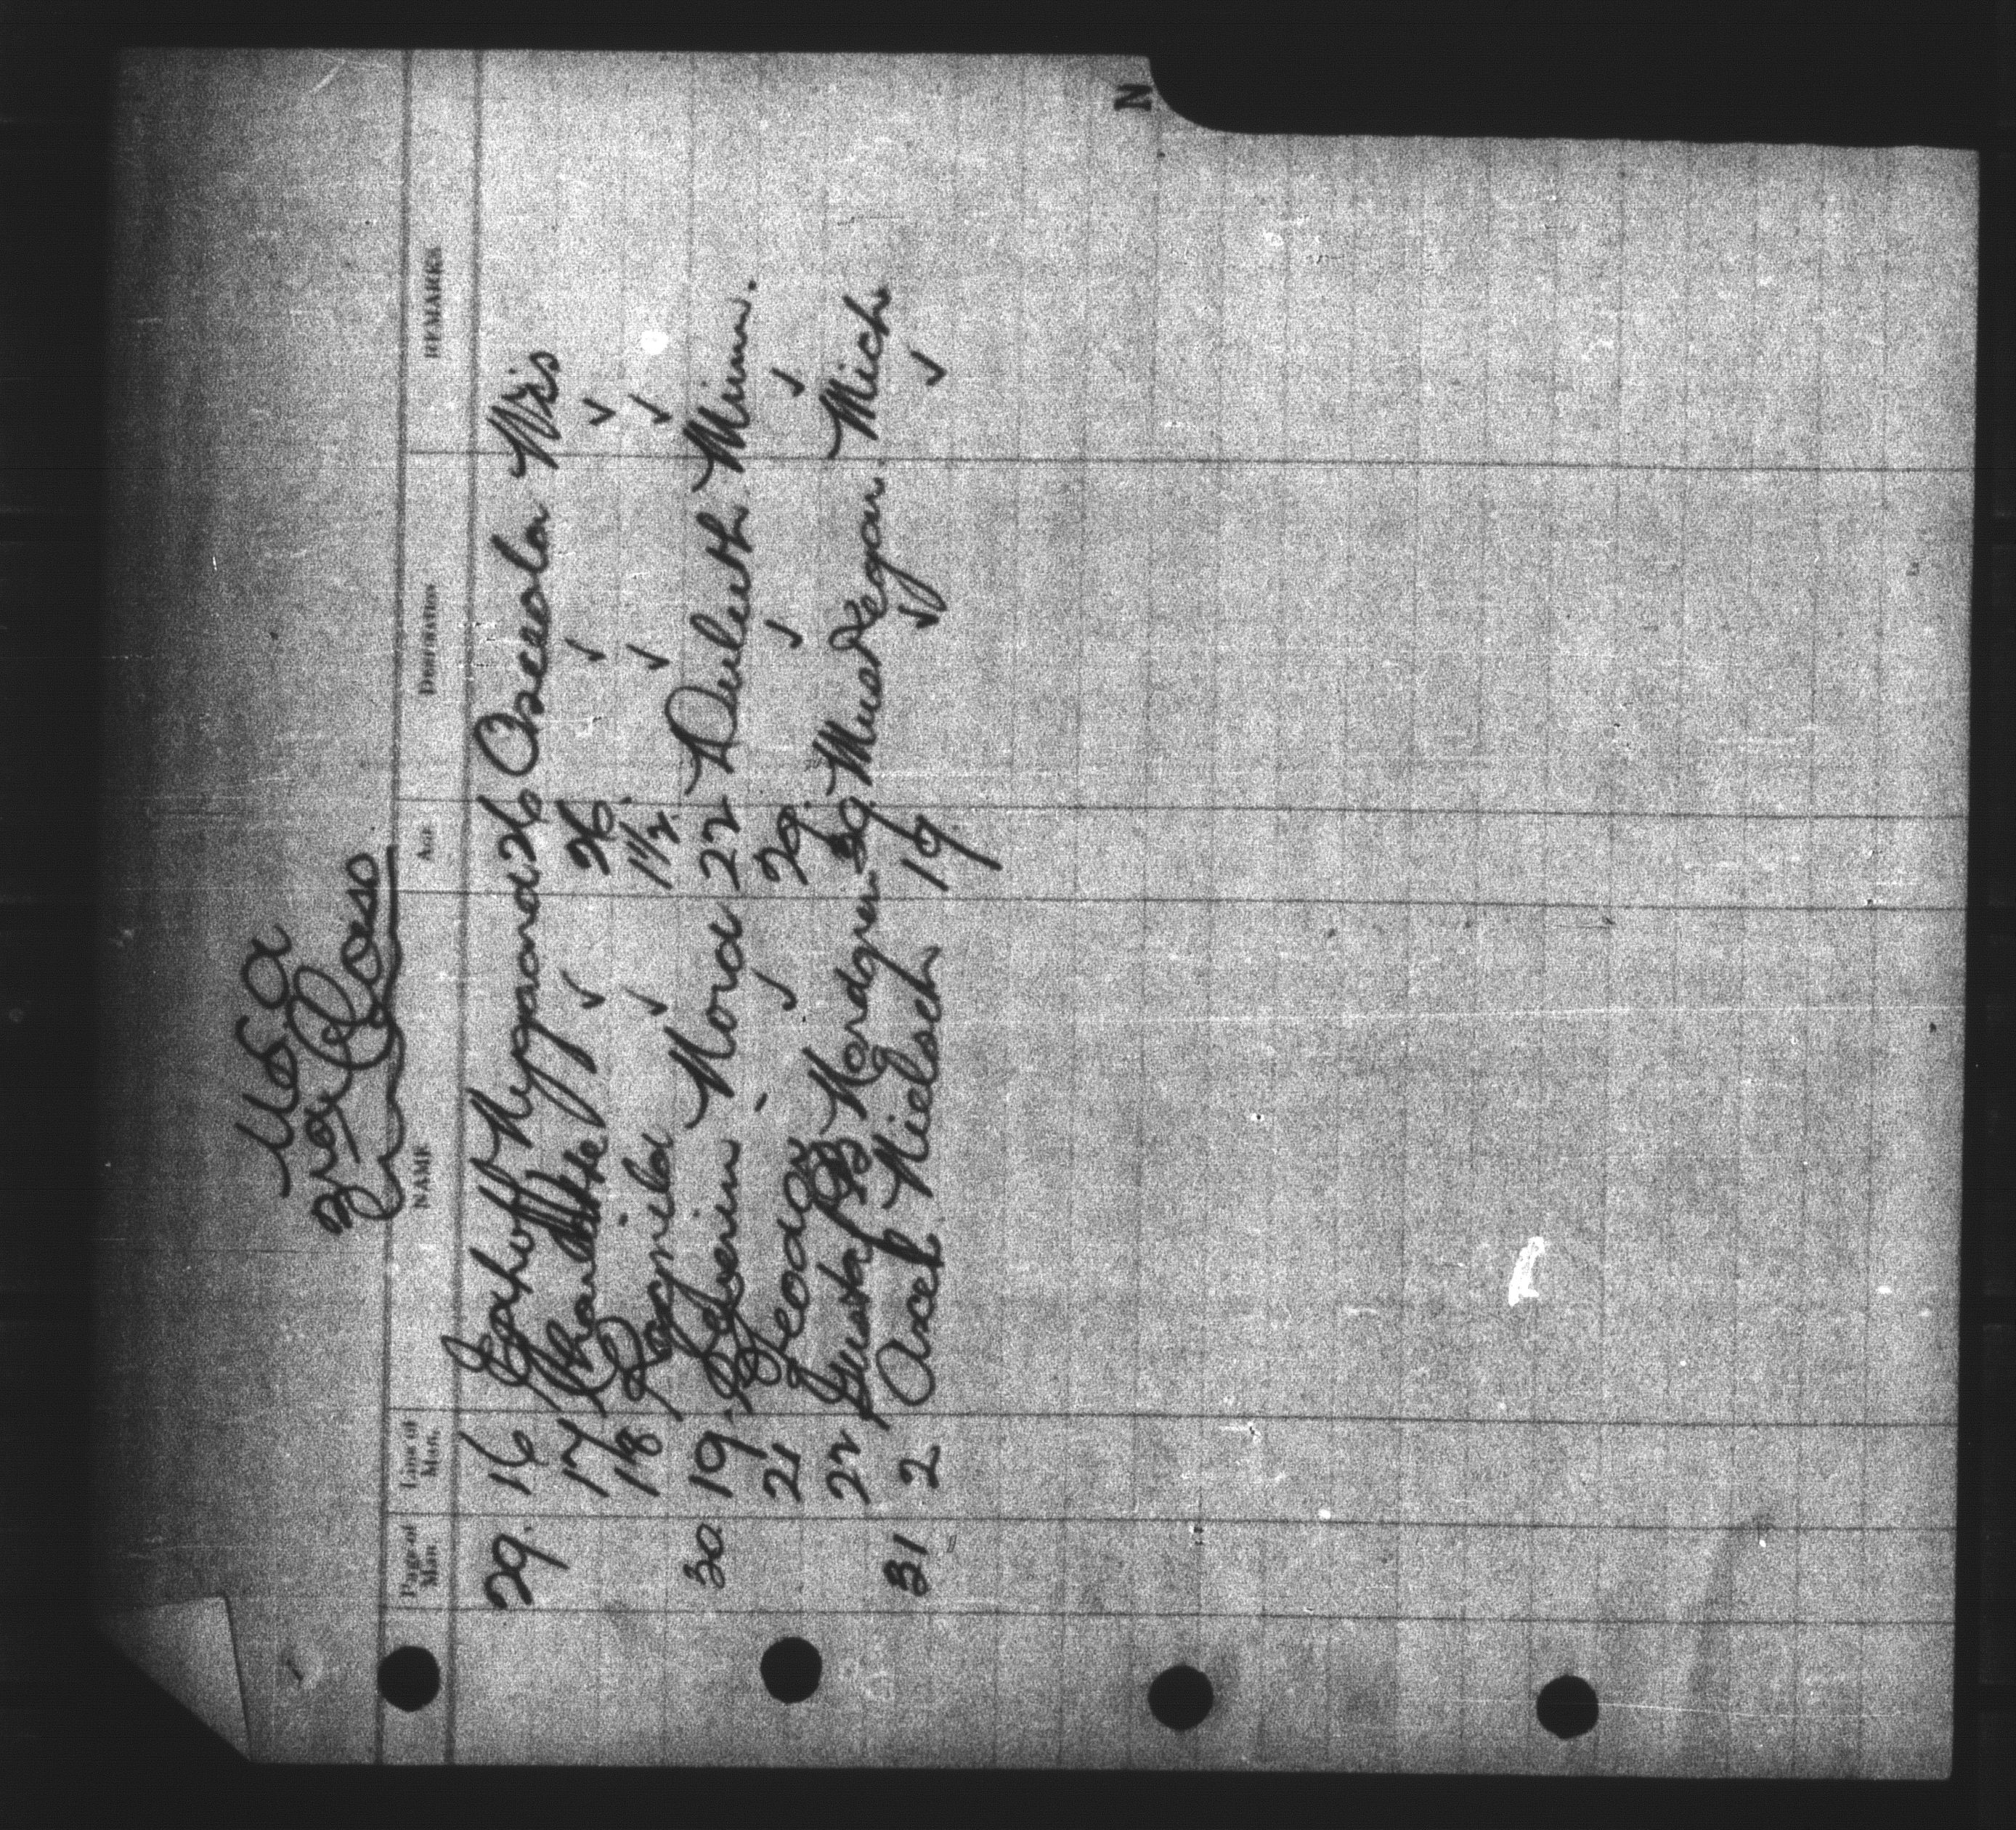 N
U.S.A
2nd Class
Page of Man. Line of Man. NAME Age DESTINATION REMARKS
29. 16 Nygaard 26 Osceola Wis
17 Charlotte ✓ 26. ✓ ✓
18 Ragnild ✓ 1 1/2. ✓ ✓
30 19. Severin Nord 22 Duluth Minn.
21 ✓ 29. ✓ ✓
22 Gustaf Nordgren 39. Muskegan. Mich
31 2 Axel Nielsen 19 ✓ ✓